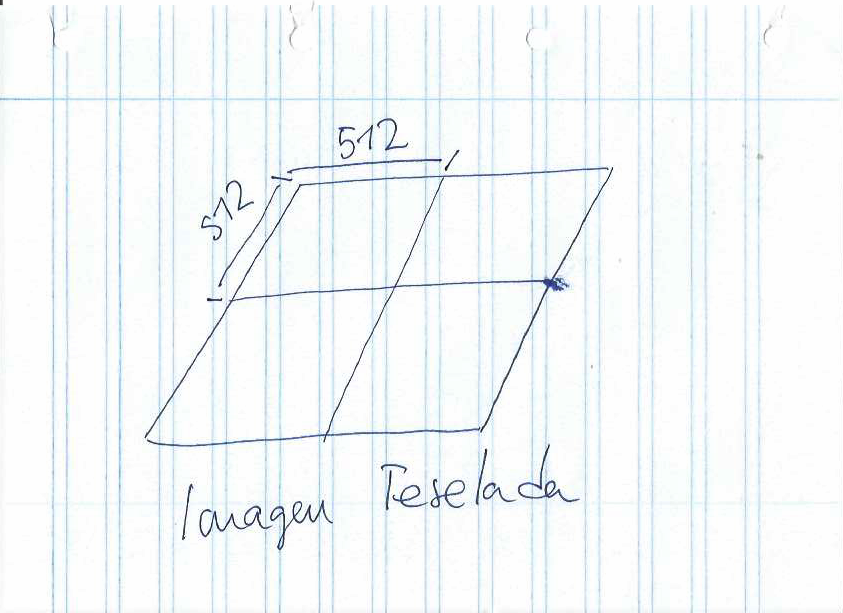 512
512
Imagen Teselada